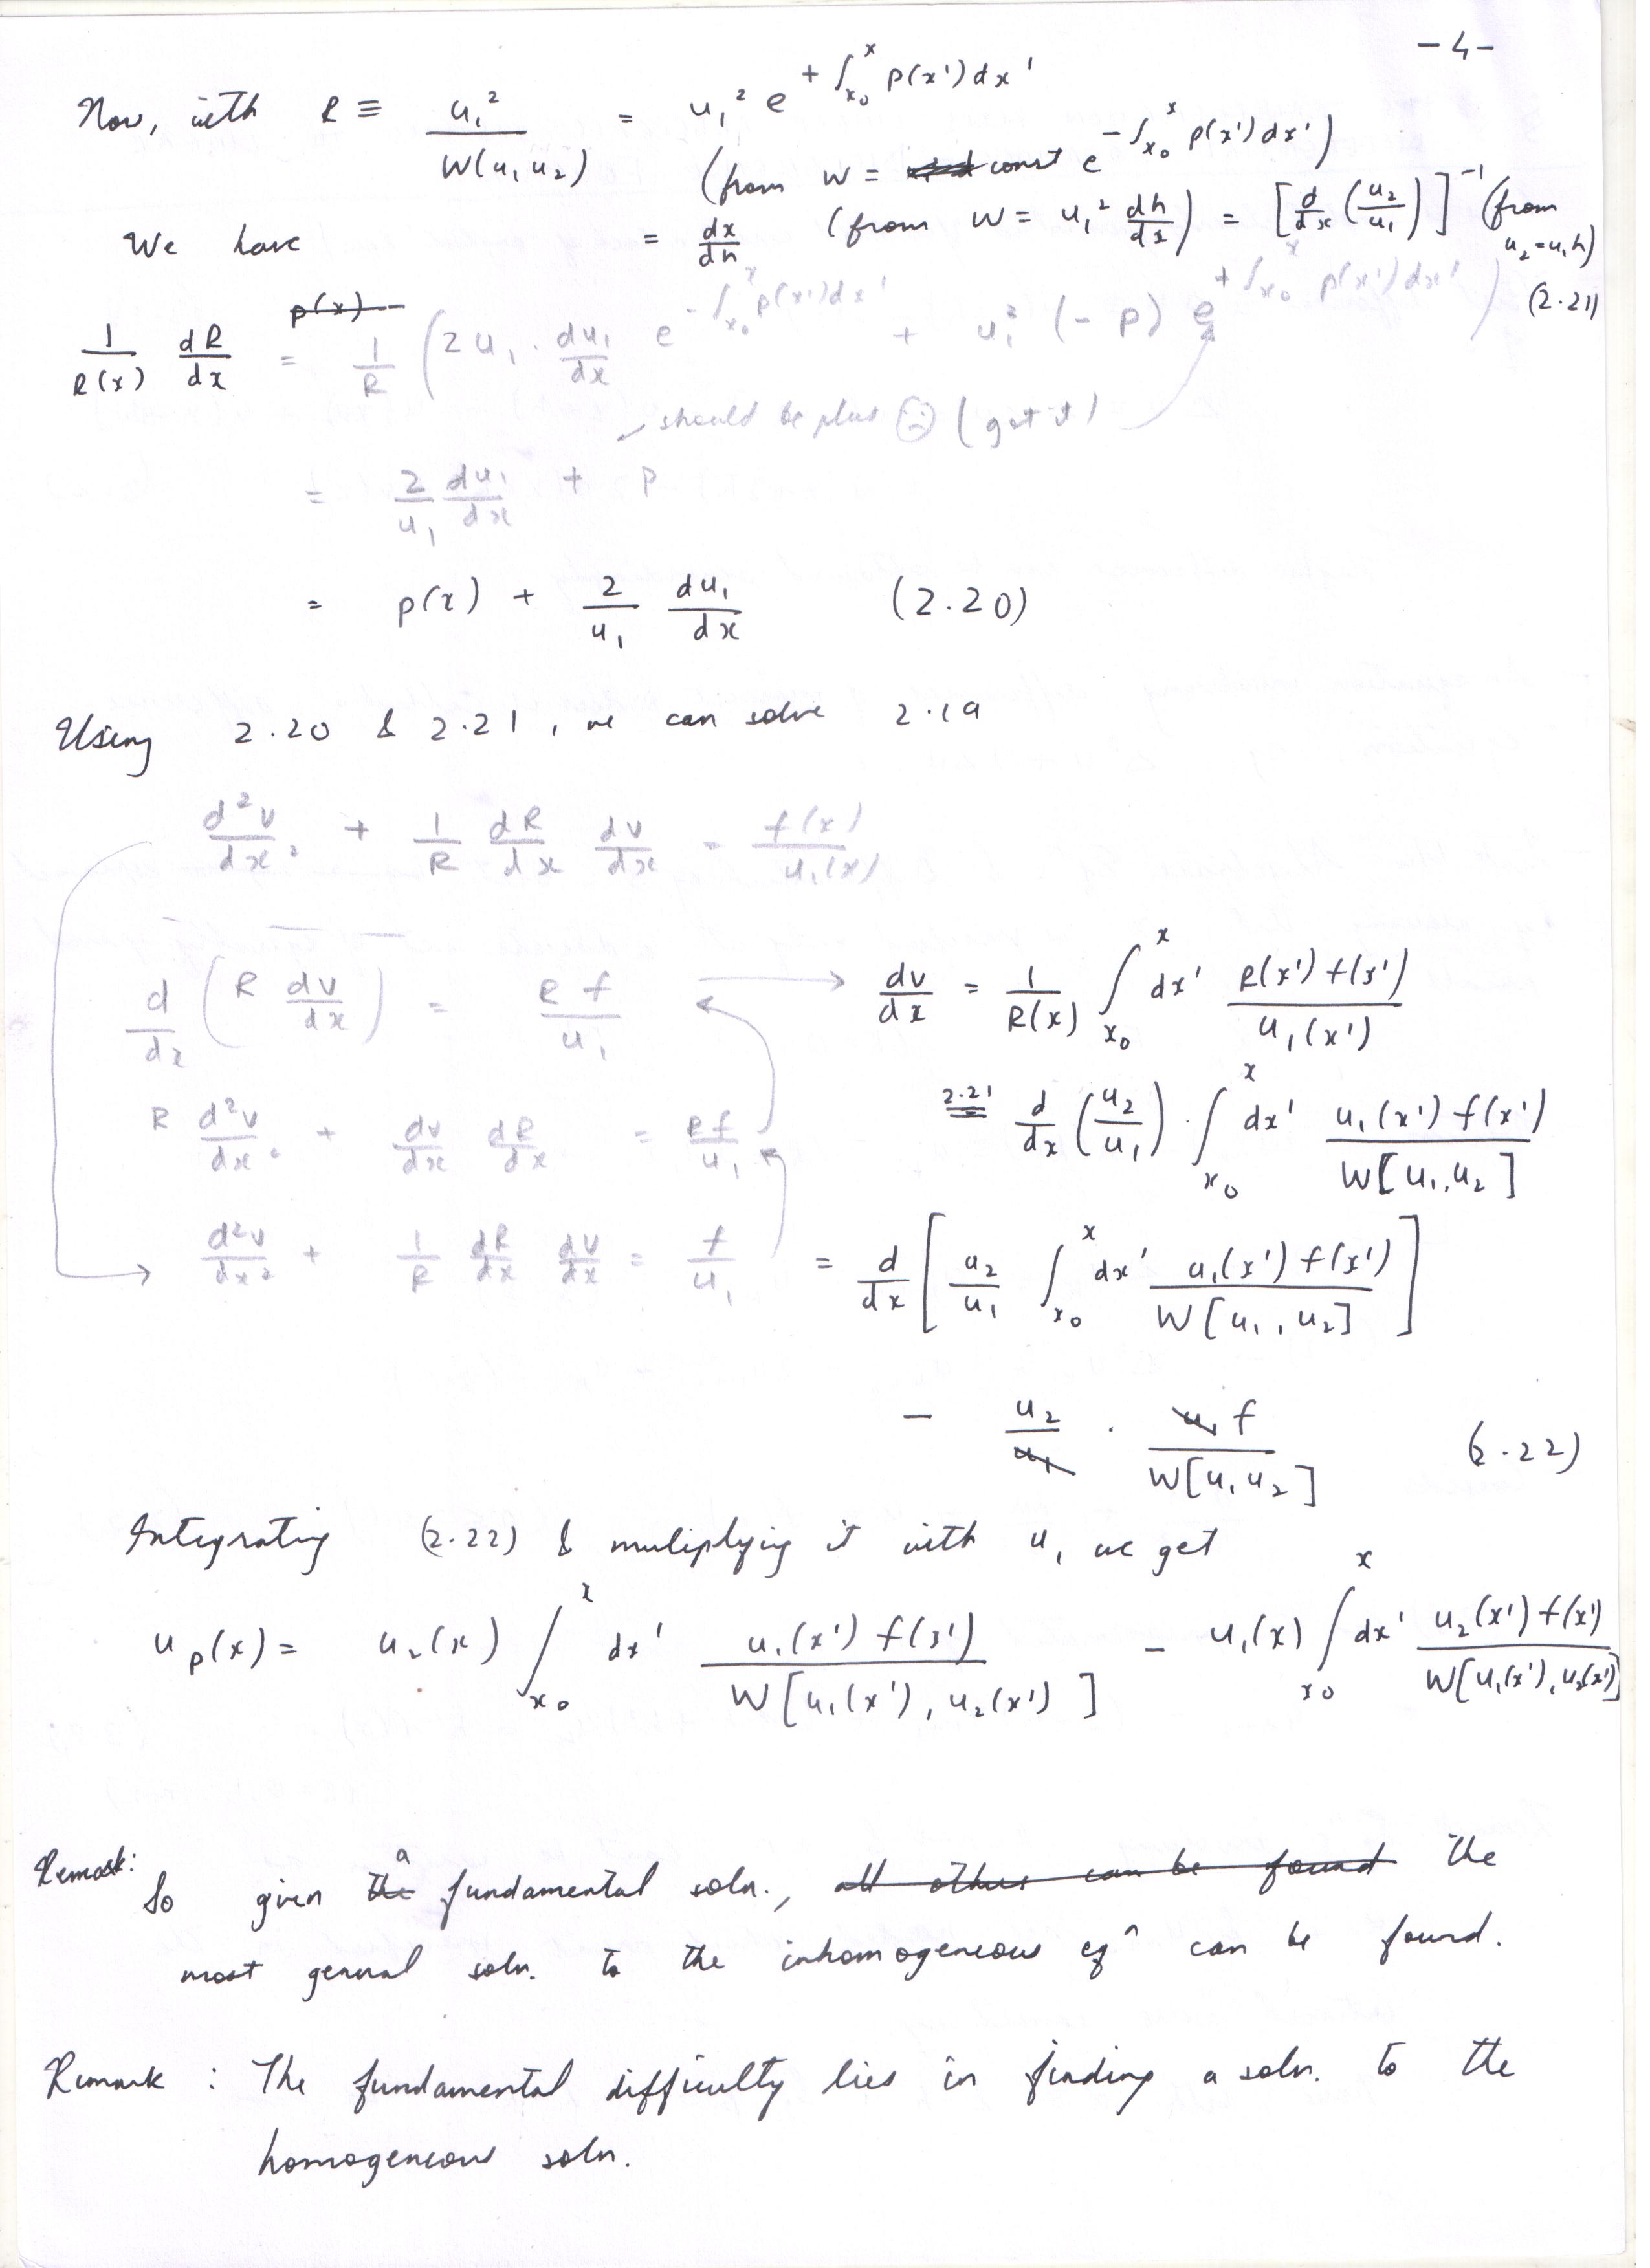 - 4 -
Now, with R ≡ u₁² / W(u₁ u₂) = u₁² e^{+∫_{x₀}^{x} p(x')dx'}
(from W = const e^{-∫_{x₀}^{x} p(x')dx'})
We have = dx/dh (from W = u₁² dh/dx) = [d/dx (u₂/u₁)]⁻¹ (from u₂=u₁h)
(2.21)
p(x)
1/R(x) dR/dx = 1/R (2u₁ · du₁/dx e^{-∫_{x₀}^{x} p(x')dx'} + u₁² (-p) e^{+∫_{x₀}^{x} p(x')dx'})
should be plus ☹ (got it)
= 2/u₁ du₁/dx + p
= p(x) + 2/u₁ du₁/dx (2.20)
Using 2.20 & 2.21, we can solve 2.19
d²v/dx² + 1/R dR/dx dv/dx = f(x)/u₁(x)
d/dx (R dv/dx) = R f/u₁ → dv/dx = 1/R(x) ∫_{x₀}^{x} dx' R(x') f(x')/u₁(x')
R d²v/dx² + dv/dx dR/dx = Rf/u₁
2.21 = d/dx (u₂/u₁) · ∫_{x₀}^{x} dx' u₁(x') f(x')/W[u₁,u₂]
d²v/dx² + 1/R dR/dx dv/dx = f/u₁
= d/dx [u₂/u₁ ∫_{x₀}^{x} dx' u₁(x') f(x')/W[u₁,u₂]]
- u₂/u₁ · u₁ f/W[u₁ u₂] (2.22)
Integrating (2.22) & muliplying it with u₁ we get
u_p(x) = u₂(x) ∫_{x₀}^{x} dx' u₁(x') f(x')/W[u₁(x'), u₂(x')] - u₁(x) ∫_{x₀}^{x} dx' u₂(x') f(x')/W[u₁(x'), u₂(x')]
Remark: So given the a fundamental soln., all others can be found the
most general soln. to the inhomogeneous eqⁿ can be found.
Remark : The fundamental difficulty lies in finding a soln. to the
homogeneous soln.